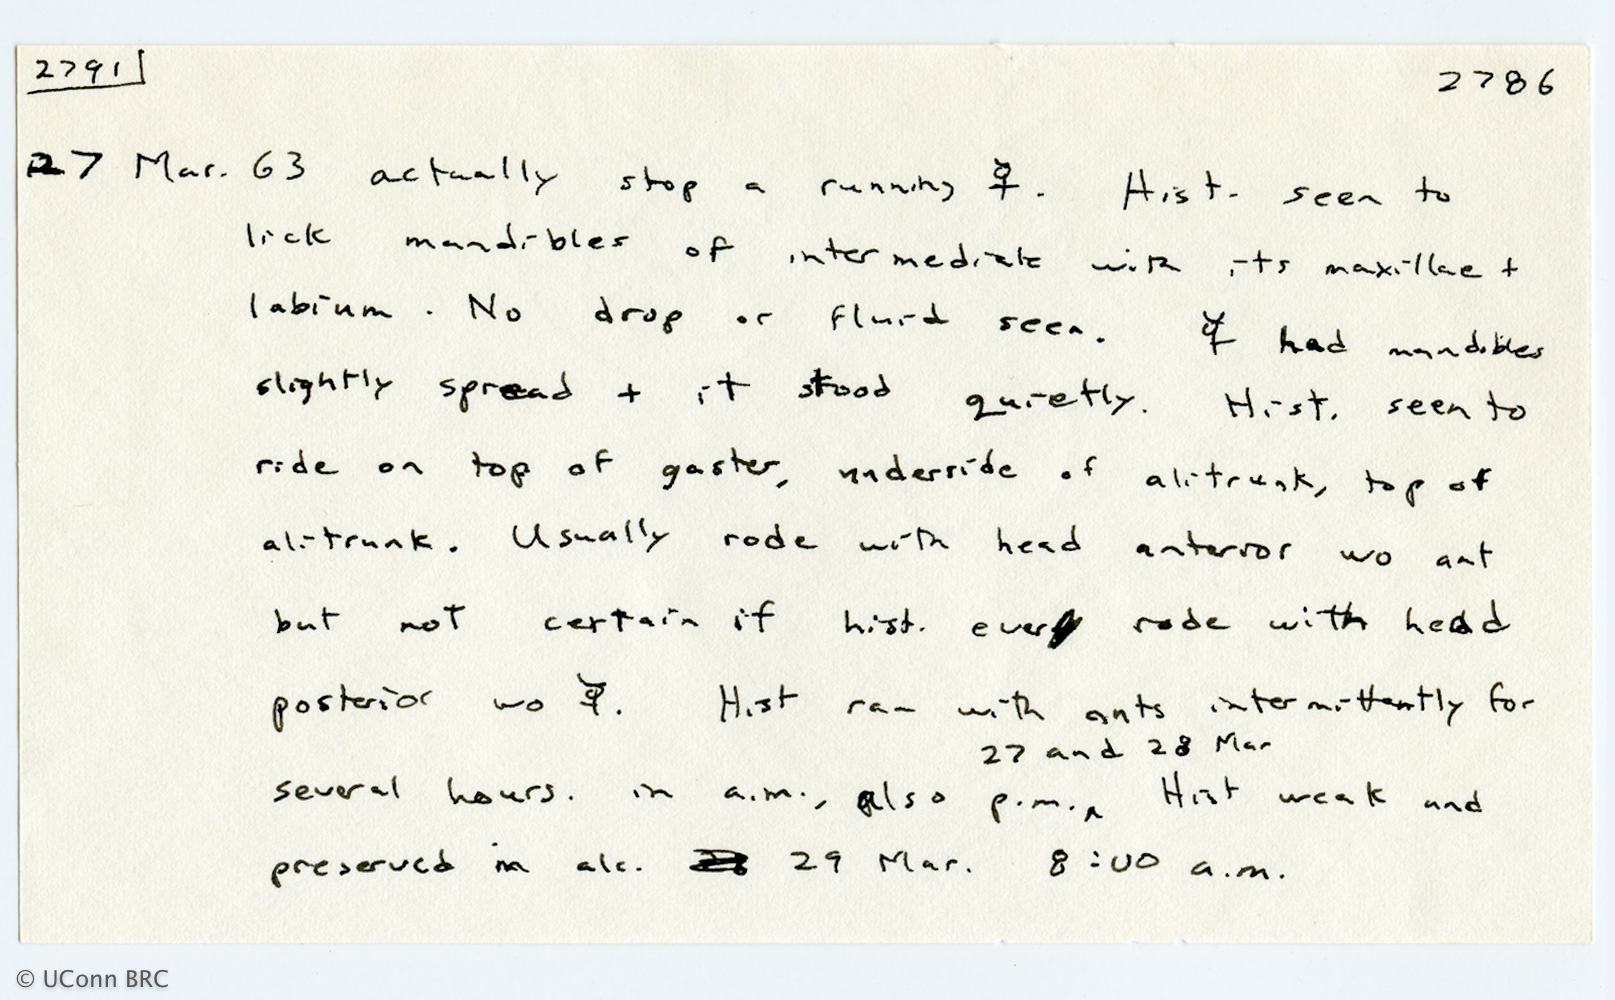 2791
2786
27 Mar. 63 actually stop a running ☿. Hist. seen to
lick mandibles of intermediate with its maxillae +
labium. No drop or fluid seen. ☿ had mandibles
slightly spread + it stood quietly. Hist. seen to
ride on top of gaster, underside of alitrunk, top of
alitrunk. Usually rode with head anterior wo ant
but not certain if hist. ever rode with head
posterior wo ☿. Hist ran with ants intermittently for
27 and 28 Mar
several hours. in a.m., also p.m.‸ Hist weak and
preserved in alc. 29 Mar. 8:00 a.m.
© UConn BRC